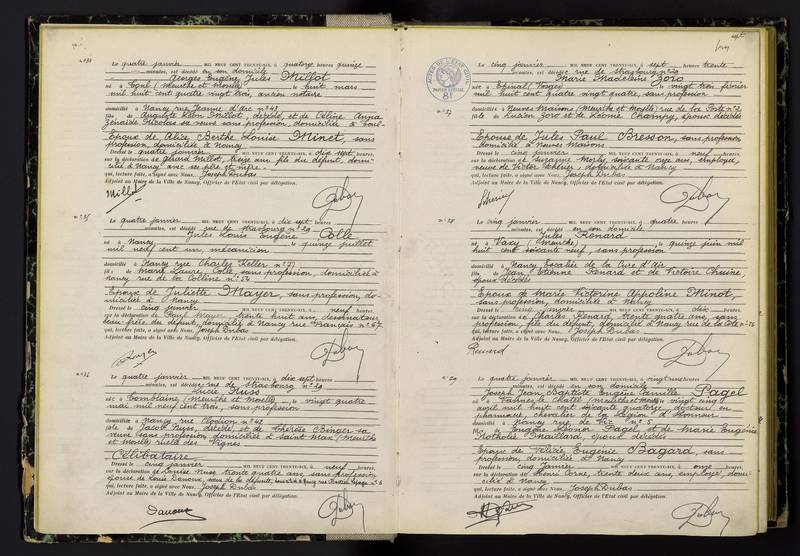 Le quatre janvier MIL NEUF CENT TRENTE-SIX, à quatorze heures quinze
minutes, est décédé en son domicile
Georges Eugène Jules Millot
né à Toul (Meurthe et Moselle) le huit mars
mil huit cent quatre vingt trois, ancien notaire
domicilié à Nancy rue Jeanne d'Arc nº 43
fils de Auguste Léon Millot, décédé, et de Céline Anna
Zénaïde Nicolas sa veuve sans profession, domiciliée à Toul
Epoux de Alice Berthe Louise Minet, sans
profession, domiciliée à Nancy
Dressé le quatre janvier MIL NEUF CENT TRENTE-SIX, à dix sept heures,
sur la déclaration de Gérard Millot, treize ans fils du défunt, domi-
cilié à Nancy avec ses père et mère
qui, lecture faite, a signé avec Nous, Joseph Dubas
Adjoint au Maire de la Ville de Nancy, Officier de l'Etat civil par délégation.
Millot
Dubas
nº 35
Le quatre janvier MIL NEUF CENT TRENTE-SIX, à dix sept heures
minutes, est décédé rue de Strasbourg nº 29
Jules Louis Eugène Colle
né à Nancy le quinze juillet
mil neuf cent un, mécanicien
domicilié à Nancy rue Charles Keller nº 77
fils de Marie Laure Colle, sans profession, domiciliée à
Nancy rue de la Colline nº 54
Epoux de Juliette Mayer, sans profession, do-
miciliée à Nancy
Dressé le cinq janvier MIL NEUF CENT TRENTE-SIX, à neuf heures,
sur la déclaration de Paul Mayer, trente huit ans, dessinateur
beau-frère du défunt, domicilié à Nancy rue Français nº 67
qui, lecture faite, a signé avec Nous, Joseph Dubas
Adjoint au Maire de la Ville de Nancy, Officier de l'Etat civil par délégation.
Dubas
nº 36
Le quatre janvier MIL NEUF CENT TRENTE-SIX, à dix sept heures
minutes, est décédée rue de Strasbourg nº 29
Lucie Nuss
née à Tomblaine (Meurthe et Moselle) le vingt quatre
mai mil neuf cent trois, sans profession
domiciliée à Nancy rue Clodion nº 42
fille de Jacob Nuss décédé et de Thérèse Binger sa
veuve sans profession domiciliée à Saint Max (Meurthe
et Moselle) ruelle des Vignes
Célibataire
Dressé le cinq janvier MIL NEUF CENT TRENTE-SIX, à neuf heures,
sur la déclaration de Nuss, trente quatre ans, sans profession,
épouse de Louis Danoux, sœur de la défunte, domiciliée à Nancy
qui, lecture faite, a signé avec Nous, Joseph Dubas
Adjoint au Maire de la Ville de Nancy, Officier de l'Etat civil par délégation.
Danoux
Dubas
sept
Le cinq janvier MIL NEUF CENT TRENTE-SIX, à sept heures trente
minutes, est décédée rue de Strasbourg nº 29
Marie Madeleine Zoro
née à Epinal (Vosges) le vingt trois février
mil huit cent quatre vingt quatre, sans profession
nº 37
domiciliée à Neuves Maisons (Meurthe et Moselle) rue de la Poste nº 2
fille de Lucien Zoro et de Léonie Champy, époux décédés
Epouse de Jules Paul Bresson, sans profession,
domicilié à Neuves Maisons
Dressé le cinq janvier MIL NEUF CENT TRENTE-SIX, à neuf heures,
sur la déclaration de Suzanne Morly, soixante ans, employée,
veuve de Victor domiciliée à Nancy
qui, lecture faite, a signé avec Nous, Joseph Dubas
Adjoint au Maire de la Ville de Nancy, Officier de l'Etat civil par délégation.
Dubas
nº 38
Le cinq janvier MIL NEUF CENT TRENTE-SIX, à quatre heures
minutes, est décédé en son domicile
Jules Renard
né à Vaxy (Meurthe) le quinze juin mil
huit cent soixante neuf, sans profession
domicilié à Nancy Escalier de la Cure d'Air
fils de Jean Etienne Renard et de Victoire
époux décédés
Epoux de Marie Victorine Appoline Minot,
sans profession, domiciliée à Nancy
Dressé le cinq janvier MIL NEUF CENT TRENTE-SIX, à dix heures,
sur la déclaration de Charles Renard, trente quatre ans, sans
profession, fils du défunt, domicilié à Nancy rue de la Côte nº 76
qui, lecture faite, a signé avec Nous, Joseph Dubas
Adjoint au Maire de la Ville de Nancy, Officier de l'Etat civil par délégation.
Renard
Dubas
nº 39
Le quatre janvier MIL NEUF CENT TRENTE-SIX, à vingt heures
minutes, est décédé en son domicile
Joseph Jean Baptiste Eugène Camille Pagel
né à Vannes le Châtel (Meurthe et Moselle) le vingt cinq
avril mil huit cent soixante quatorze, docteur en
pharmacie, chevalier de la Légion d'Honneur
domicilié à Nancy rue de nº 5
fils de Eugène Léonor Pagel, et de Marie Eugénie
Nathalie Gnaillard, époux décédés
Epoux de Félicie Eugénie Bagard, sans
profession, domiciliée à Nancy
Dressé le cinq janvier MIL NEUF CENT TRENTE-SIX, à onze heures,
sur la déclaration de Henri Corne, trente deux ans, employé, domi-
cilié à Nancy
qui, lecture faite, a signé avec Nous, Joseph Dubas
Adjoint au Maire de la Ville de Nancy, Officier de l'Etat civil par délégation.
Dubas